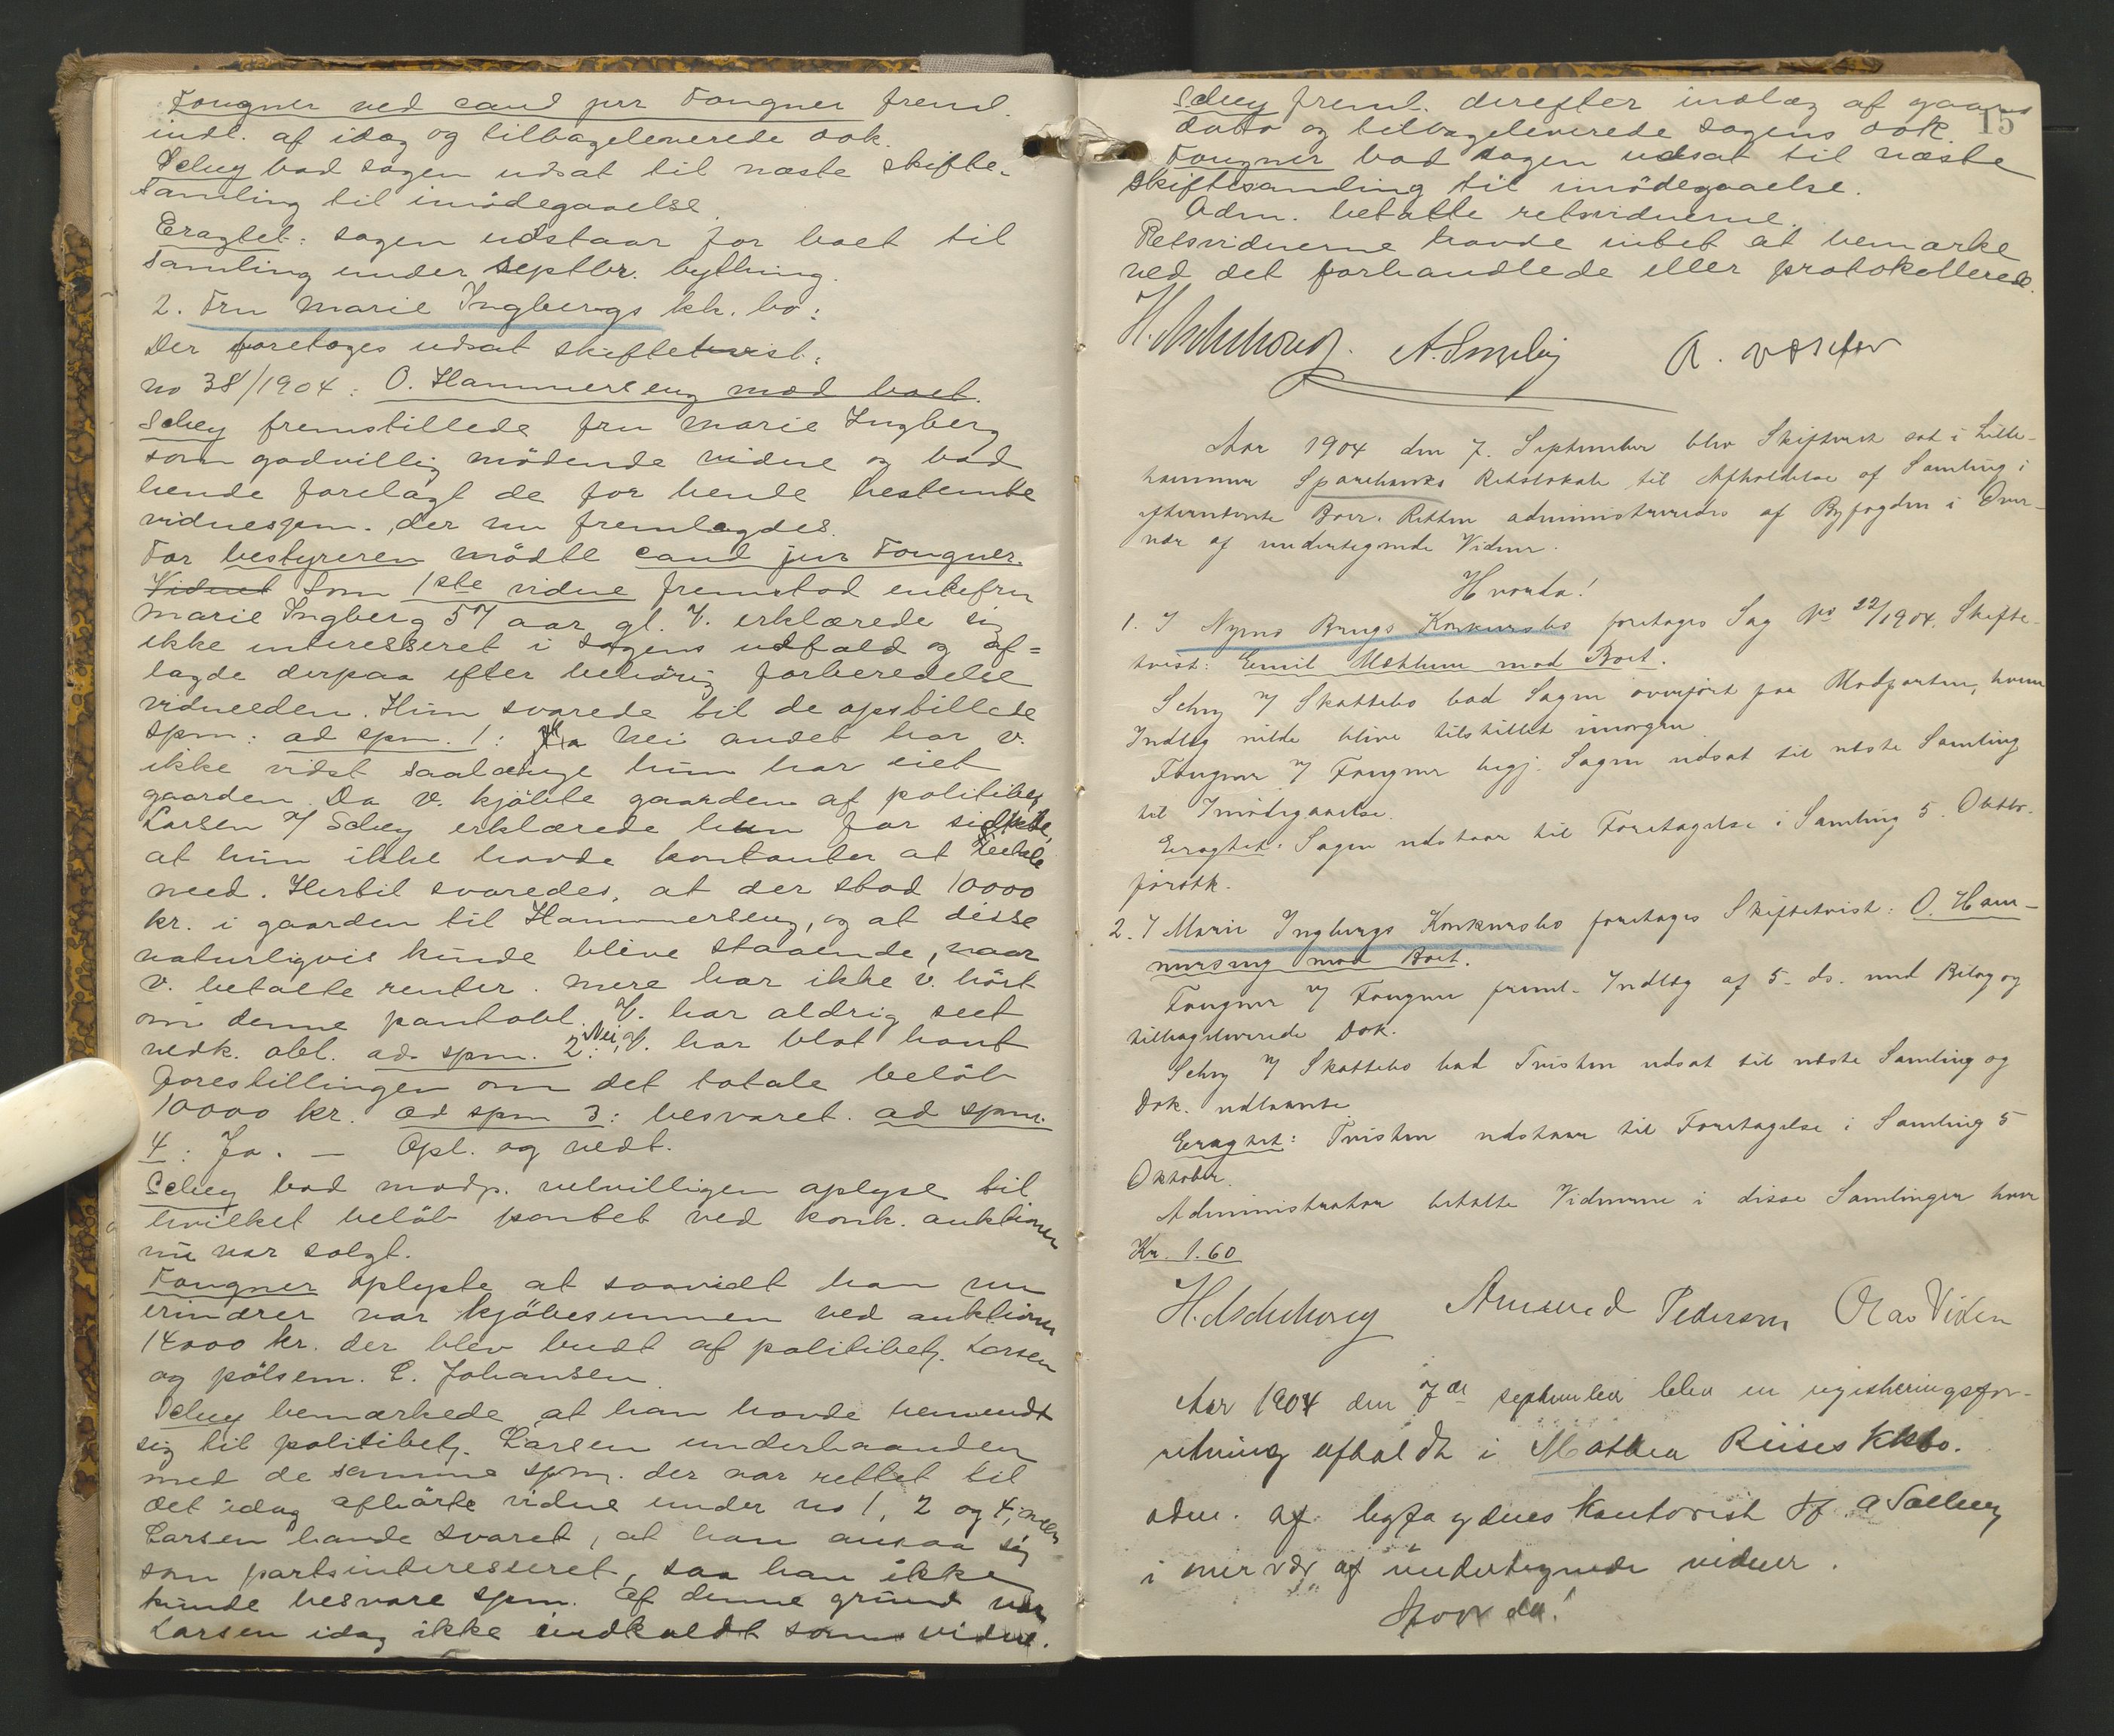 Fougner ved cand jur Fougner freml.
indl. af idag og tilbageleverede dok.
Schey bad sagen udsat til næste skifte-
samling til imödegaaelse.
Eragtet: sagen udstaar for boet til
samling under septbr. bything.
2. Fru Marie Ingbergs kk. bo:
Der foretages udsat skiftetvist:
no 38/1904: O. Hammerseng mod boet.
Schey fremstillede fru Marie Ingberg
som godvillig mödende vidne og bad
hende forelagt de for hende bestemte
vidnespm. der nu fremlagdes.
For bestyreren mödte cand jur Fougner.
Vidnet Som 1ste vidne fremstod enkefru
Marie Ingberg 57 aar gl. V. erklærede sig
ikke interesseret i sagens udfald og af=
lagde derpaa efter behörig forberedelse
vidneeden. Hun svarede til de opstillede
spm: ad spm. 1: Nei andet har v.
ikke vidst saalænge hun har eiet
gaarden. Da v. kjöbte gaarden af politibetj
Larsen v/ Schey erklærede hun for sidste,
at hun ikke havde kontanter at
med. Hertil svaredes, at der stod 10000
kr. i gaarden til Hammerseng, og at disse
naturligvis kunde blive staaende, naar
v. betalte renter. Mere har ikke v. hört
om denne pantobl. V. har aldrig seet
vedk. obl. ad spm. 2: Nei, V. har blot havt
forestillingen om det totale belöb
10000 kr. ad spm 3: besvaret. ad spm.
4: Ja. — Opl. og vedt.
Schey bad modp. velvilligen oplyse til
hvilket belöb pantet ved konk. auktionen
nu var solgt.
Fougner oplyste at saavidt han nu
erindrer var kjöbesummen ved auktionen
14000 kr. der blev budt af politibetj. Larsen
og pölsem. C. Johansen.
Schey bemærkede at han havde henvendt
sig til politibetj. Larsen underhaanden
med de samme spm. der var rettet til
det idag afhörte vidne under no 1, 2 og 4, men
Larsen havde svaret, at han ansaa sig
som partsinteresseret, saa han ikke
kunde besvare spm. Af denne grund var
Larsen idag ikke indkaldt som vidne.
15
Schey freml. derefter indlæg af gaars
dato og tilbageleverede sagens dok.
Fougner bad sagen udsat til næste
skiftesamling til imödegaaelse.
Adm. betalte retsvidnerne.
Retsvidnerne havde intet at bemærke
ved det forhandlede eller protokollerede.
H. Aschehoug. A. Smeby
Aar 1904 den 7. September blev Skifteret sat i Lille-
hammer Sparebanks Retslokale til Afholdelse af Samling i
efternævnte Boer. Retten administreredes af Byfogden i Over-
vær af undertegnede Vidner.
Hvorda!
1. I Nymo Brugs Konkursbo foretages Sag No 22/1904. Skifte-
tvist: Emil Mæhlum mod Boet.
Schey v/ Skattebo bad Sagen overført paa Modparten, hvem
Indlæg vilde blive tilstillet imorgen.
Fougner v/ Fougner begj. Sagen udsat til næste Samling
til Imødegaaelse.
Eragtet: Sagen udstaar til Foretagelse i Samling 5. Oktbr.
førstk.
2. I Marie Ingbergs Konkursbo foretages Skiftetvist: O. Ham-
merseng mod Boet.
Fougner v/ Fougner freml. Indlæg af 5. ds. med Bilag og
tilbageleverede Dok.
Schey v/ Skattebo bad Tvisten udsat til næste Samling og
Dok. udlaante
Eragtet: Tvisten udstaar til Foretagelse i Samling 5
Oktober.
Administrator betalte Vidnerne i disse Samlinger hver
Kr. 1.60
H. Aschehoug Amund Pedersen Olav Viken
Aar 1904 den 7de september blev en registreringsfor-
retning afholdt i Mathea Riises kkbo.
adm. af byfogdens kontorist
i overvær af undertegnede vidner.
Hvorda!